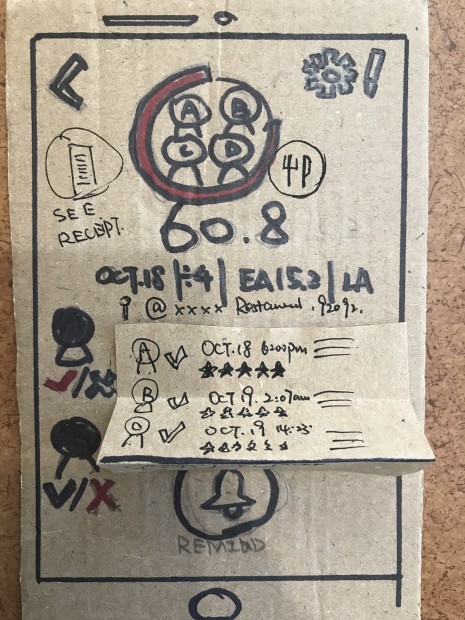 A B
C D
4P
SEE
RECEIPT.
60.8
OCT.18 | ÷4 | EA15.2 | LA
@ xxxx Restaurant.
A ✓ OCT.18 6:00pm
★★★★★
B ✓ OCT 19. 2:07am
☆☆☆☆☆
✓ OCT.19 14:23
☆☆☆☆☆
REMIND